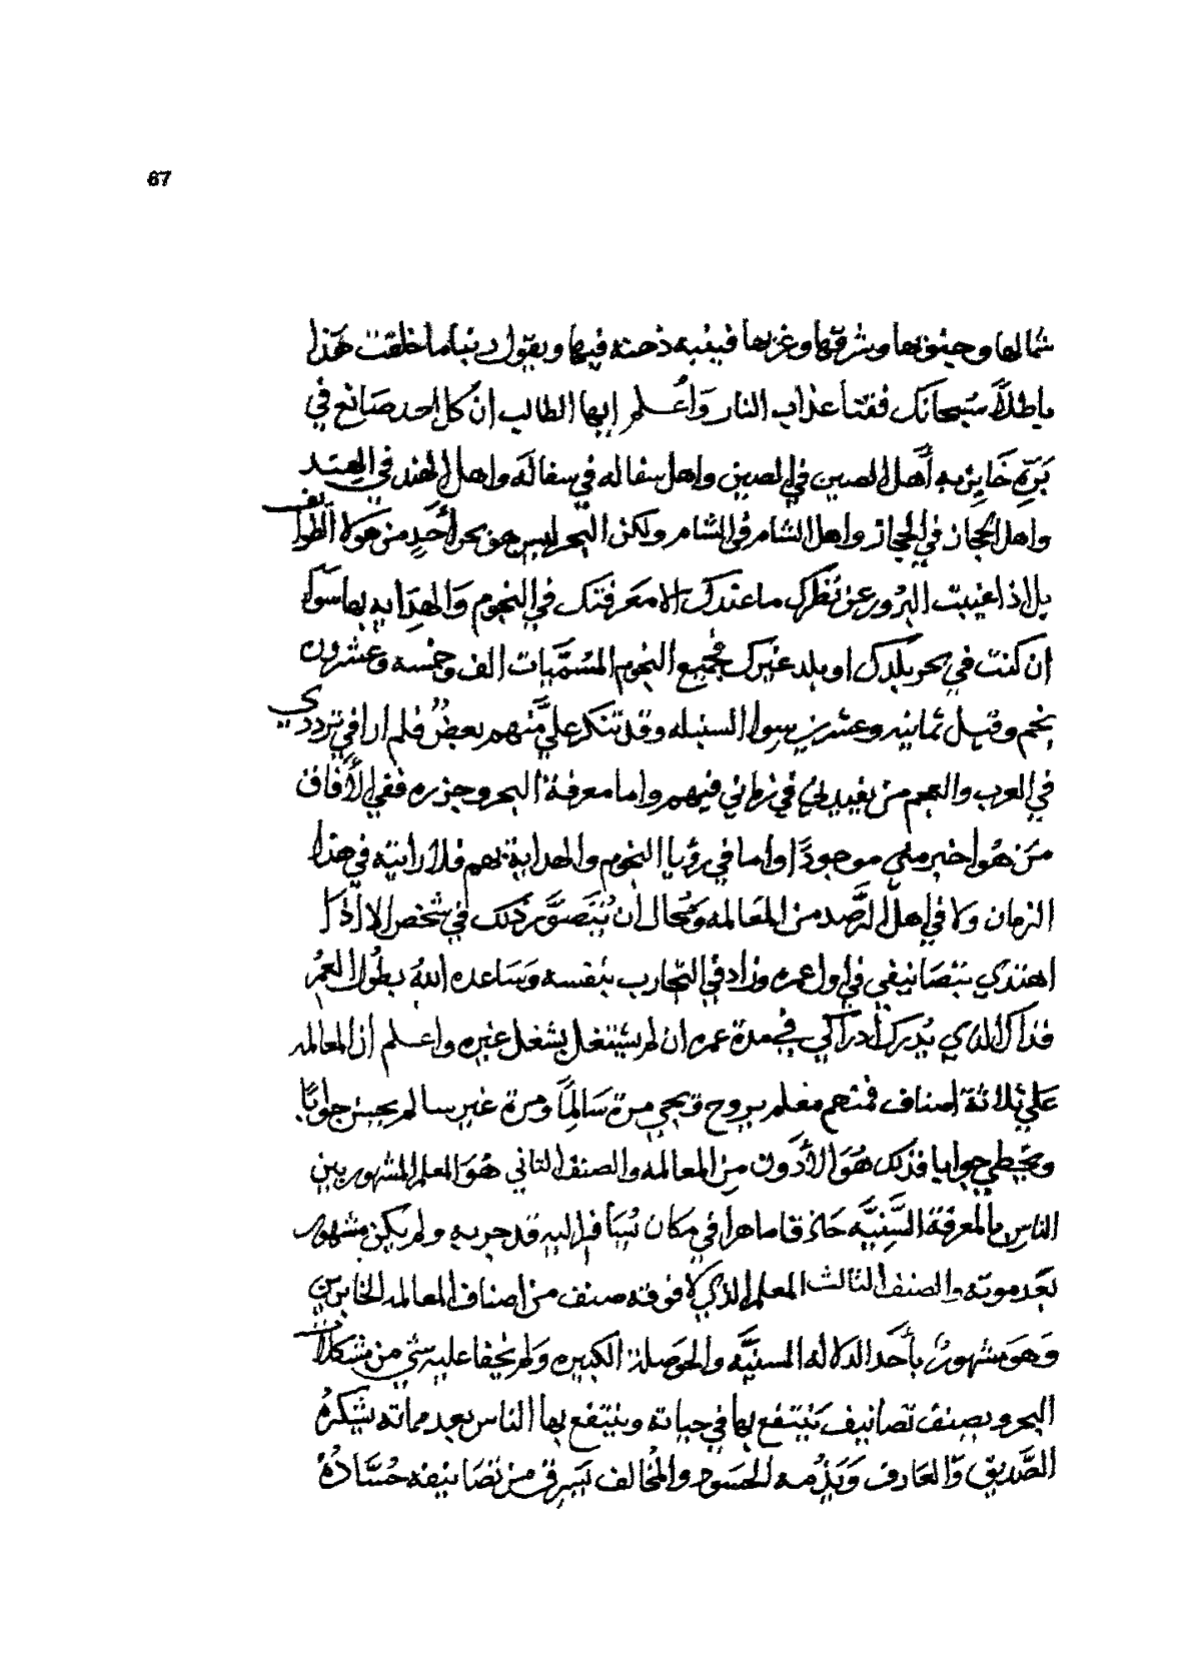 67
شمالها وجنوبها وشرقها وغربها فينبه ذهنه فيها ويقول ربنا ما خلقت هَذا
باطلاً سُبحَانَك فقنا عذاب النار وَاُعلم ايها الطالب ان كل احد صَانع في
بَرِّهِ خَابِرْ به أهل الصين في الصين واهل سفاله في سفالَه واهل الهند في الهند
واهل الحجاز في الحجاز واهل الشام في الشام ولكن البحر ليس هو بحر أحَدٍ من هَولاء الطوايف
بل اذا غيبت البرُور عن نَظَرك ما عندك الا مَعَرفتك في النجوم وَالهِدَايه بها سَوَا
ان كنت في بحر بَلَدك او بلد غيرك فجميع النجوم المسَمَّيات الف وخمسه وعشرون
نجم وقيل ثمانيه وعشرين سوا السنبله وقد تنكر عليَّ منهم بعضٌ فلم ارا في ترددي
في العرب والعجم من يفيدني في زماني فيهم واما معرفة البحر وجزره ففي الأفاق
مَن هُوا خبر مني موجودًا واما في رؤيا النجوم والهداية بهم فلا رايته في هذا
الزمان ولا في اهل الرَّصد من المعَالمه وَمُحال ان يُتَصوَّر ذلك في شخص الا اذا
اهتدي بتصَانيفي في اول عمره وزاد في التجارب بنفسه وَسَاعده اللهُ بطُول العمُر
فذاك الذي يُدرك أدراكي في مدة عمره ان لم يشتغل بشغل غيره واعلم ان المعالمه
عَلي ثلاثة اصناف فمنهم معلم يروح ويجي مرة سَالماً ومرة غير سالم يجيز جوابًا
ويخطي جوابا فذلك هُوَ الأدون من المعالمه والصنف الثاني هُوَ المعلم المشهور بين
الناس بالمعرفة السَّنيَّه حَاذقا ماهرا في مكان نُبَأ فر اليه قد جربه ولم يكن مشهور
بَعَد موته والصنف الثالث المعلم الذي لا فوقه صنف من اصناف المعالمه الخابرين
وَهوَ مشهورٌ بأحَد الدلاله السنيَّه والحوَصلة الكبيره وَلم يخفا عليه شي من مشكلات
البحر ويصنف تصانيف يَنتفع بها في حياته وينتفع بها الناس بعد مماته يشكرهُ
الصَّديق وَالعَارف وَيَذُمه الحسَود والمخُالف يَسرق من تصَانيفه حُسَّادُهُ